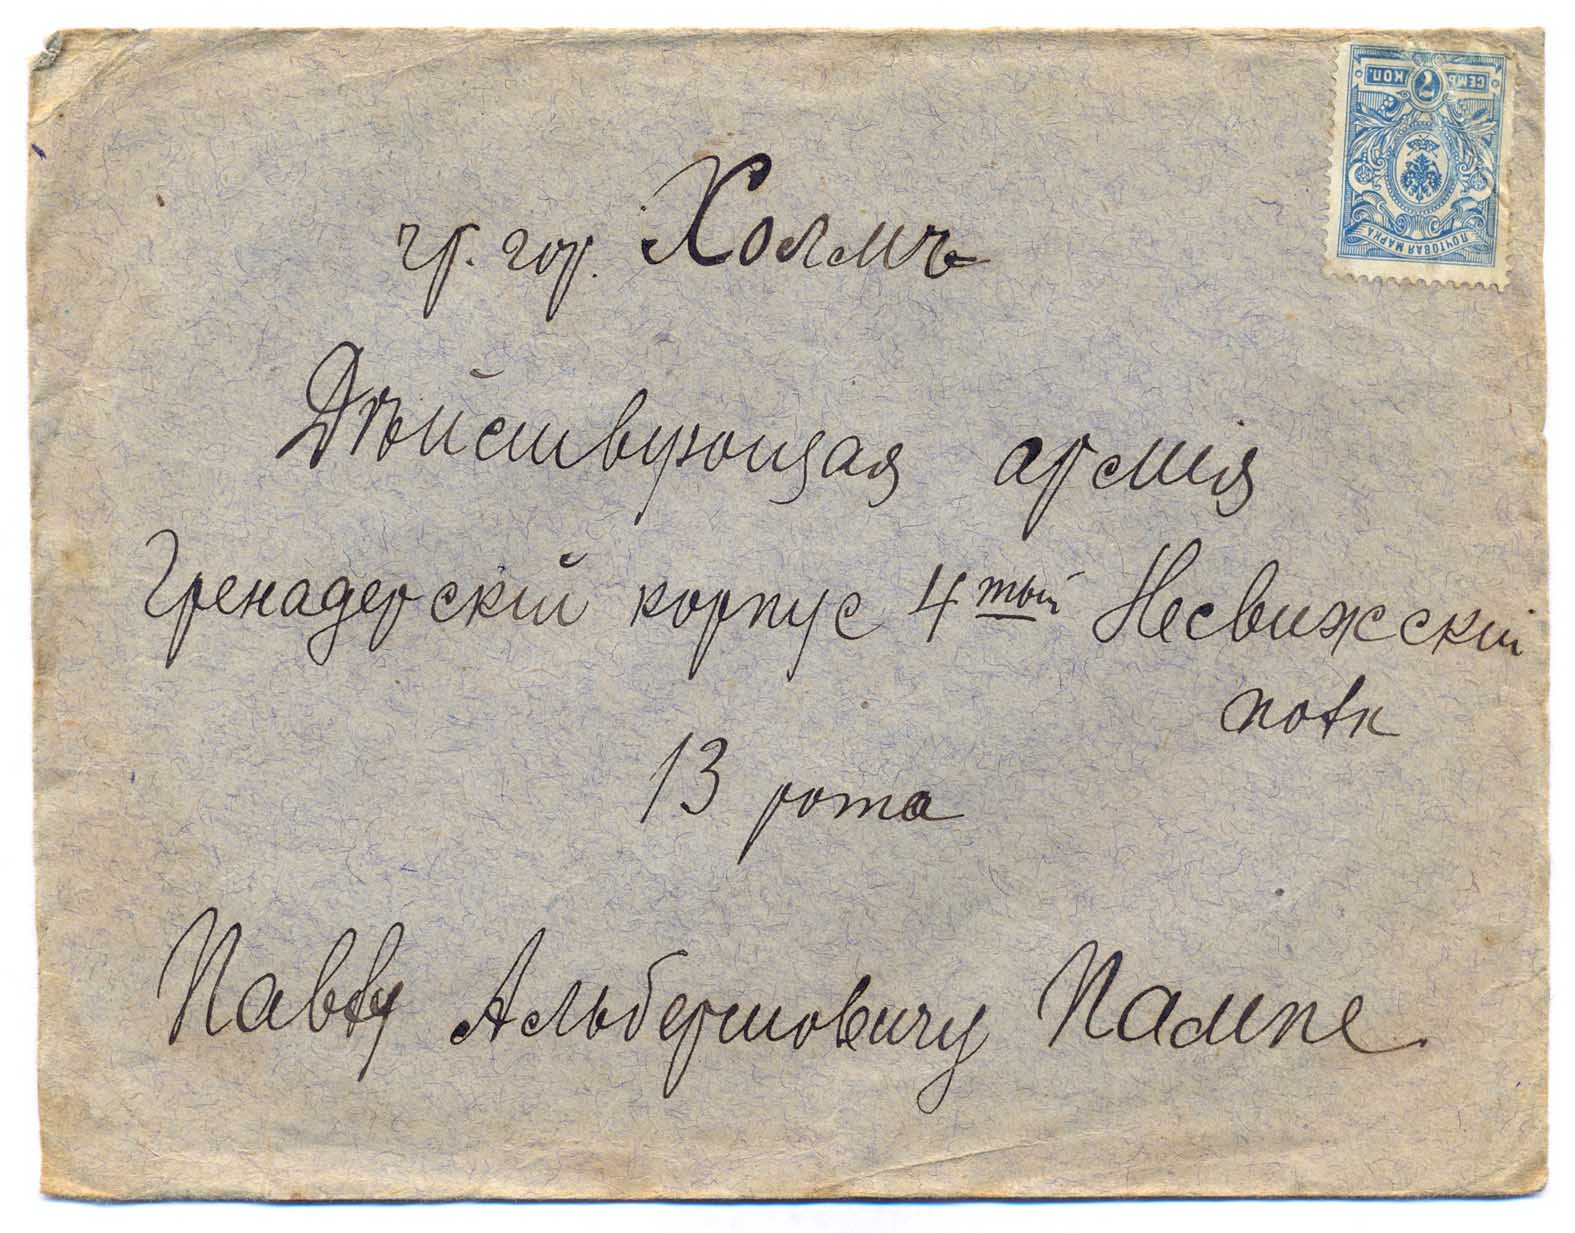 СЕМЬ 7 КОП.
ПОЧТОВАЯ МАРКА
чр. гор. Холмъ
Дѣйствующая армія
Гренадерскій корпус 4тый Несвижскій
полк
13 рота
Павлу Альбертовичу Палпе